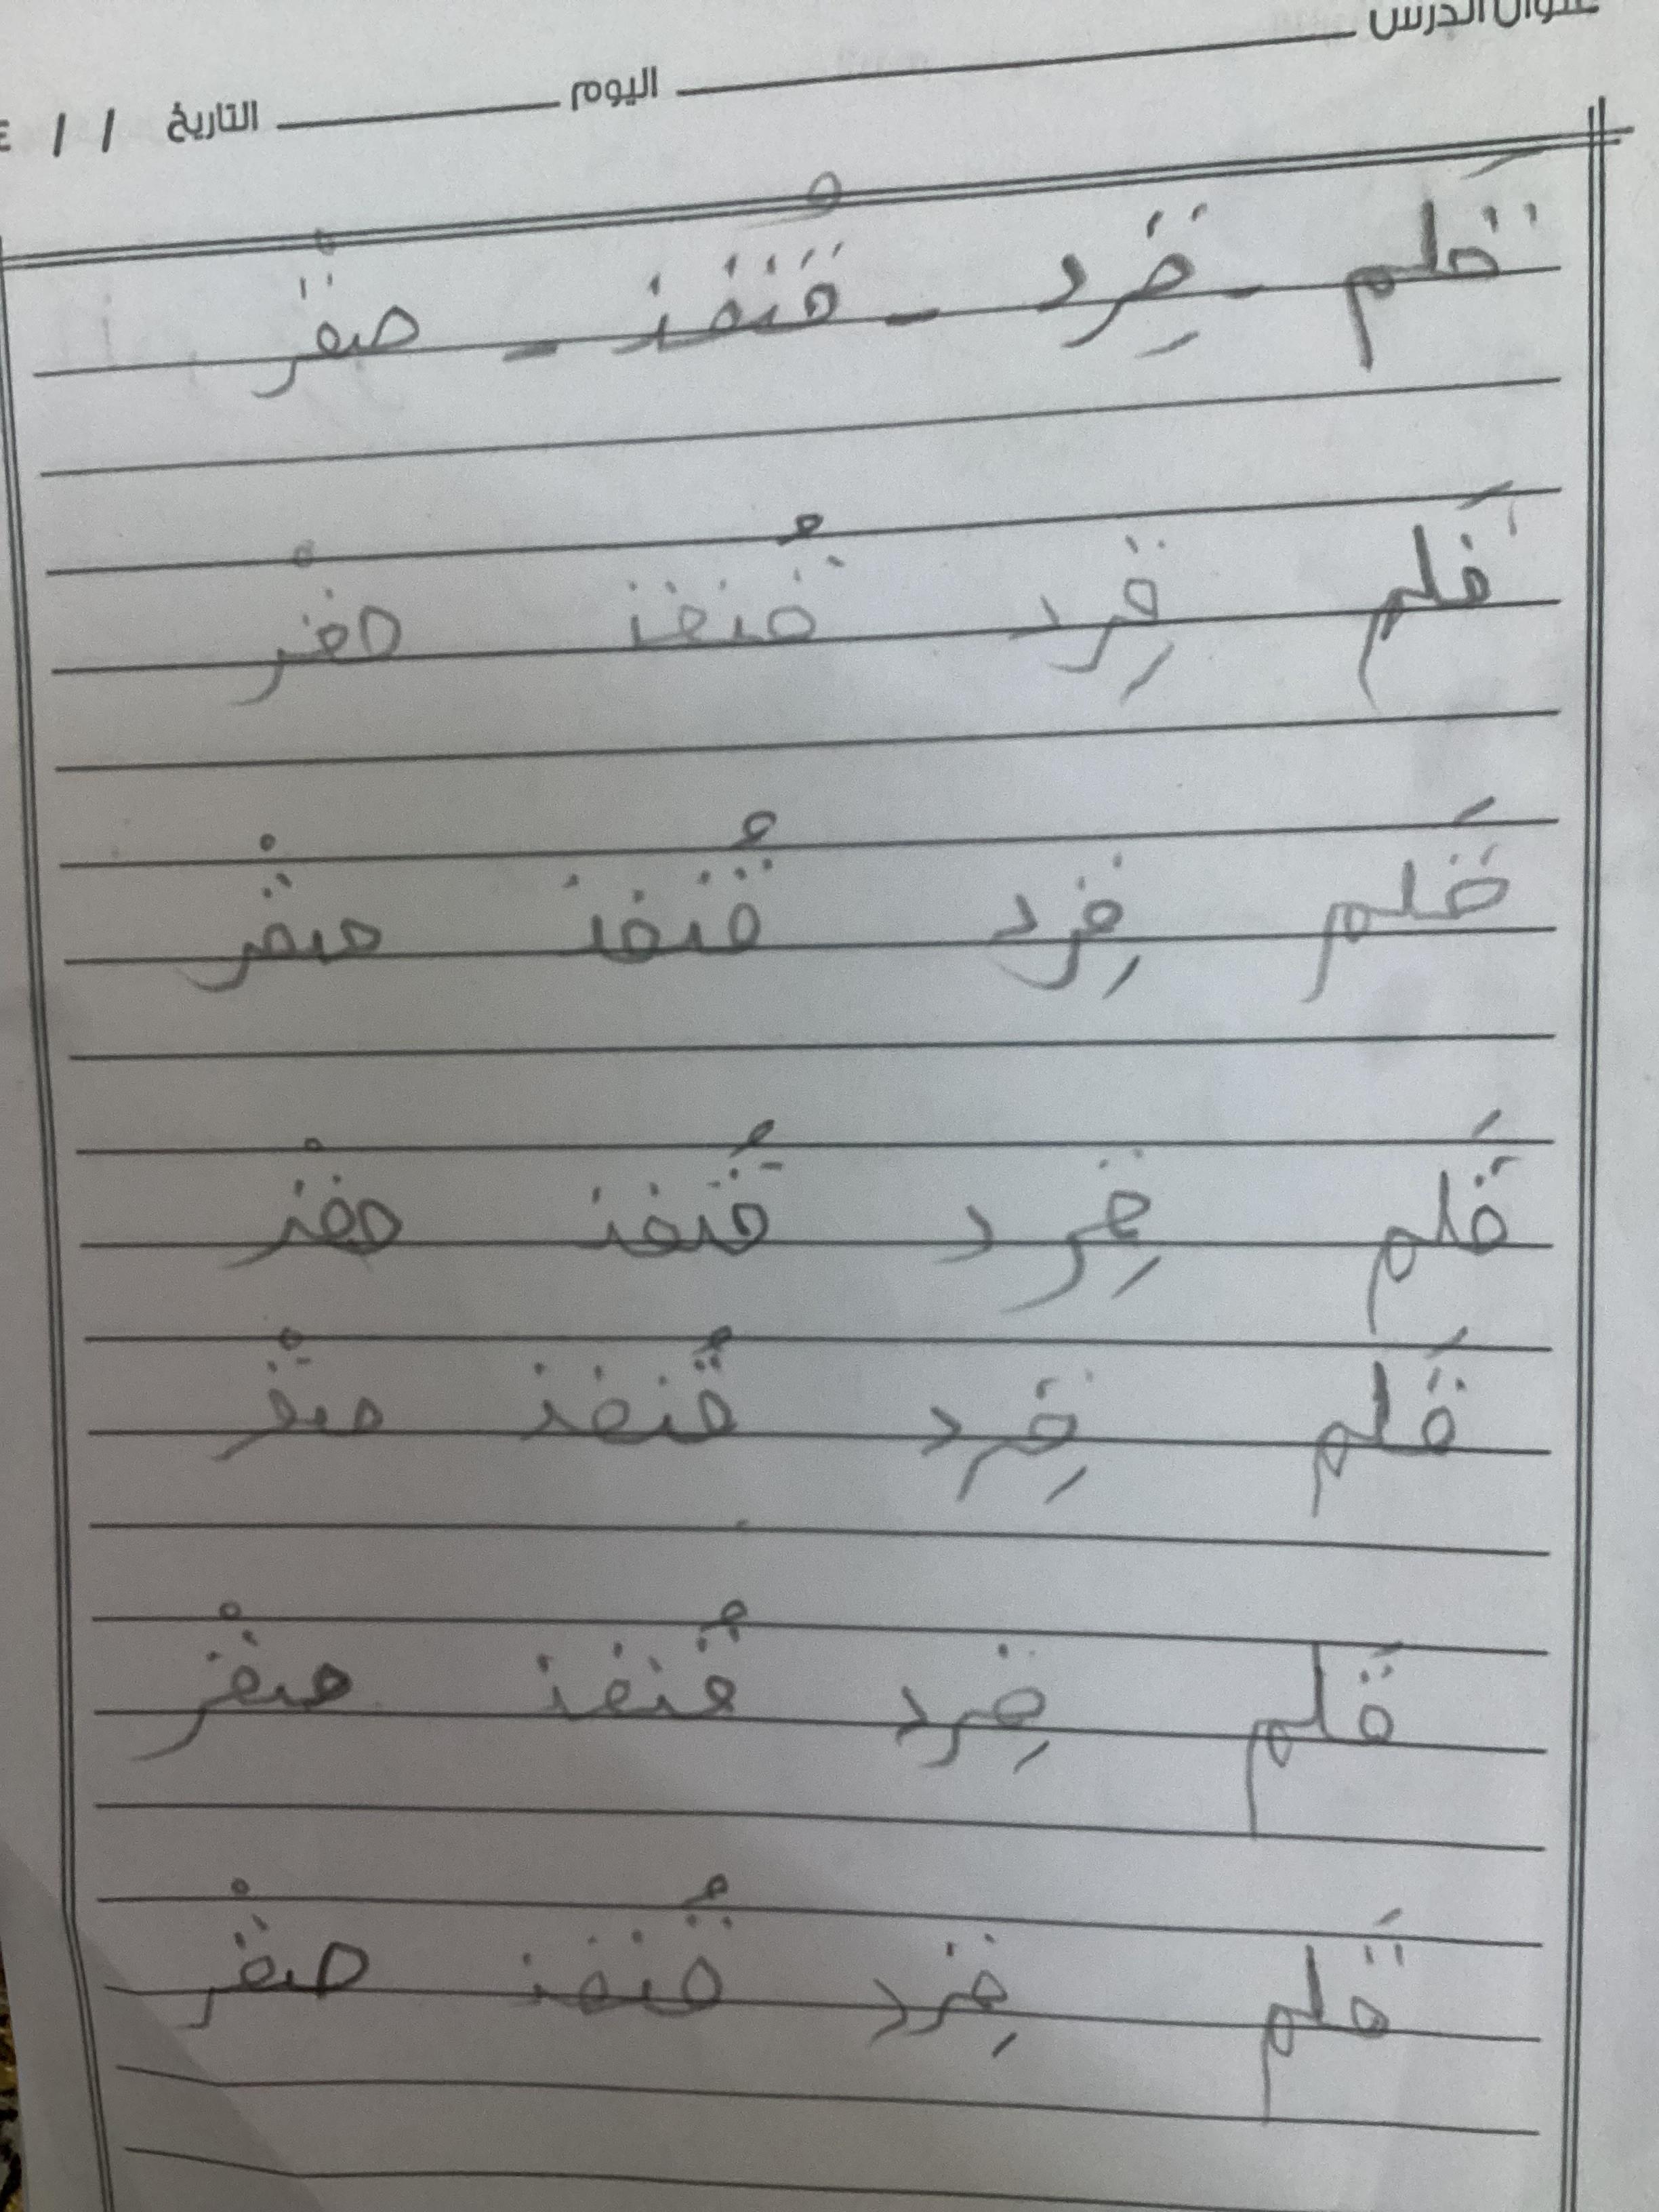 عنوان الدرس
اليوم التاريخ / /
قَلم - قِرد - قُنفذ - صقْر
قَلم قِرد قُنفذ صقْر
قَلم قِرد قُنفذ صقْر
قَلم قِرد قُنفذ صقْر
قَلم قِرد قُنفذ صقْر
قَلم قِرد قُنفذ صقْر
قَلم قِرد قُنفذ صقْر